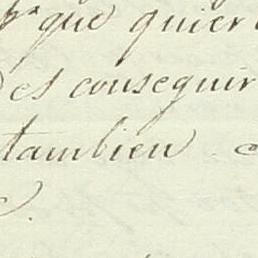 que quier
es conseguir
tambien